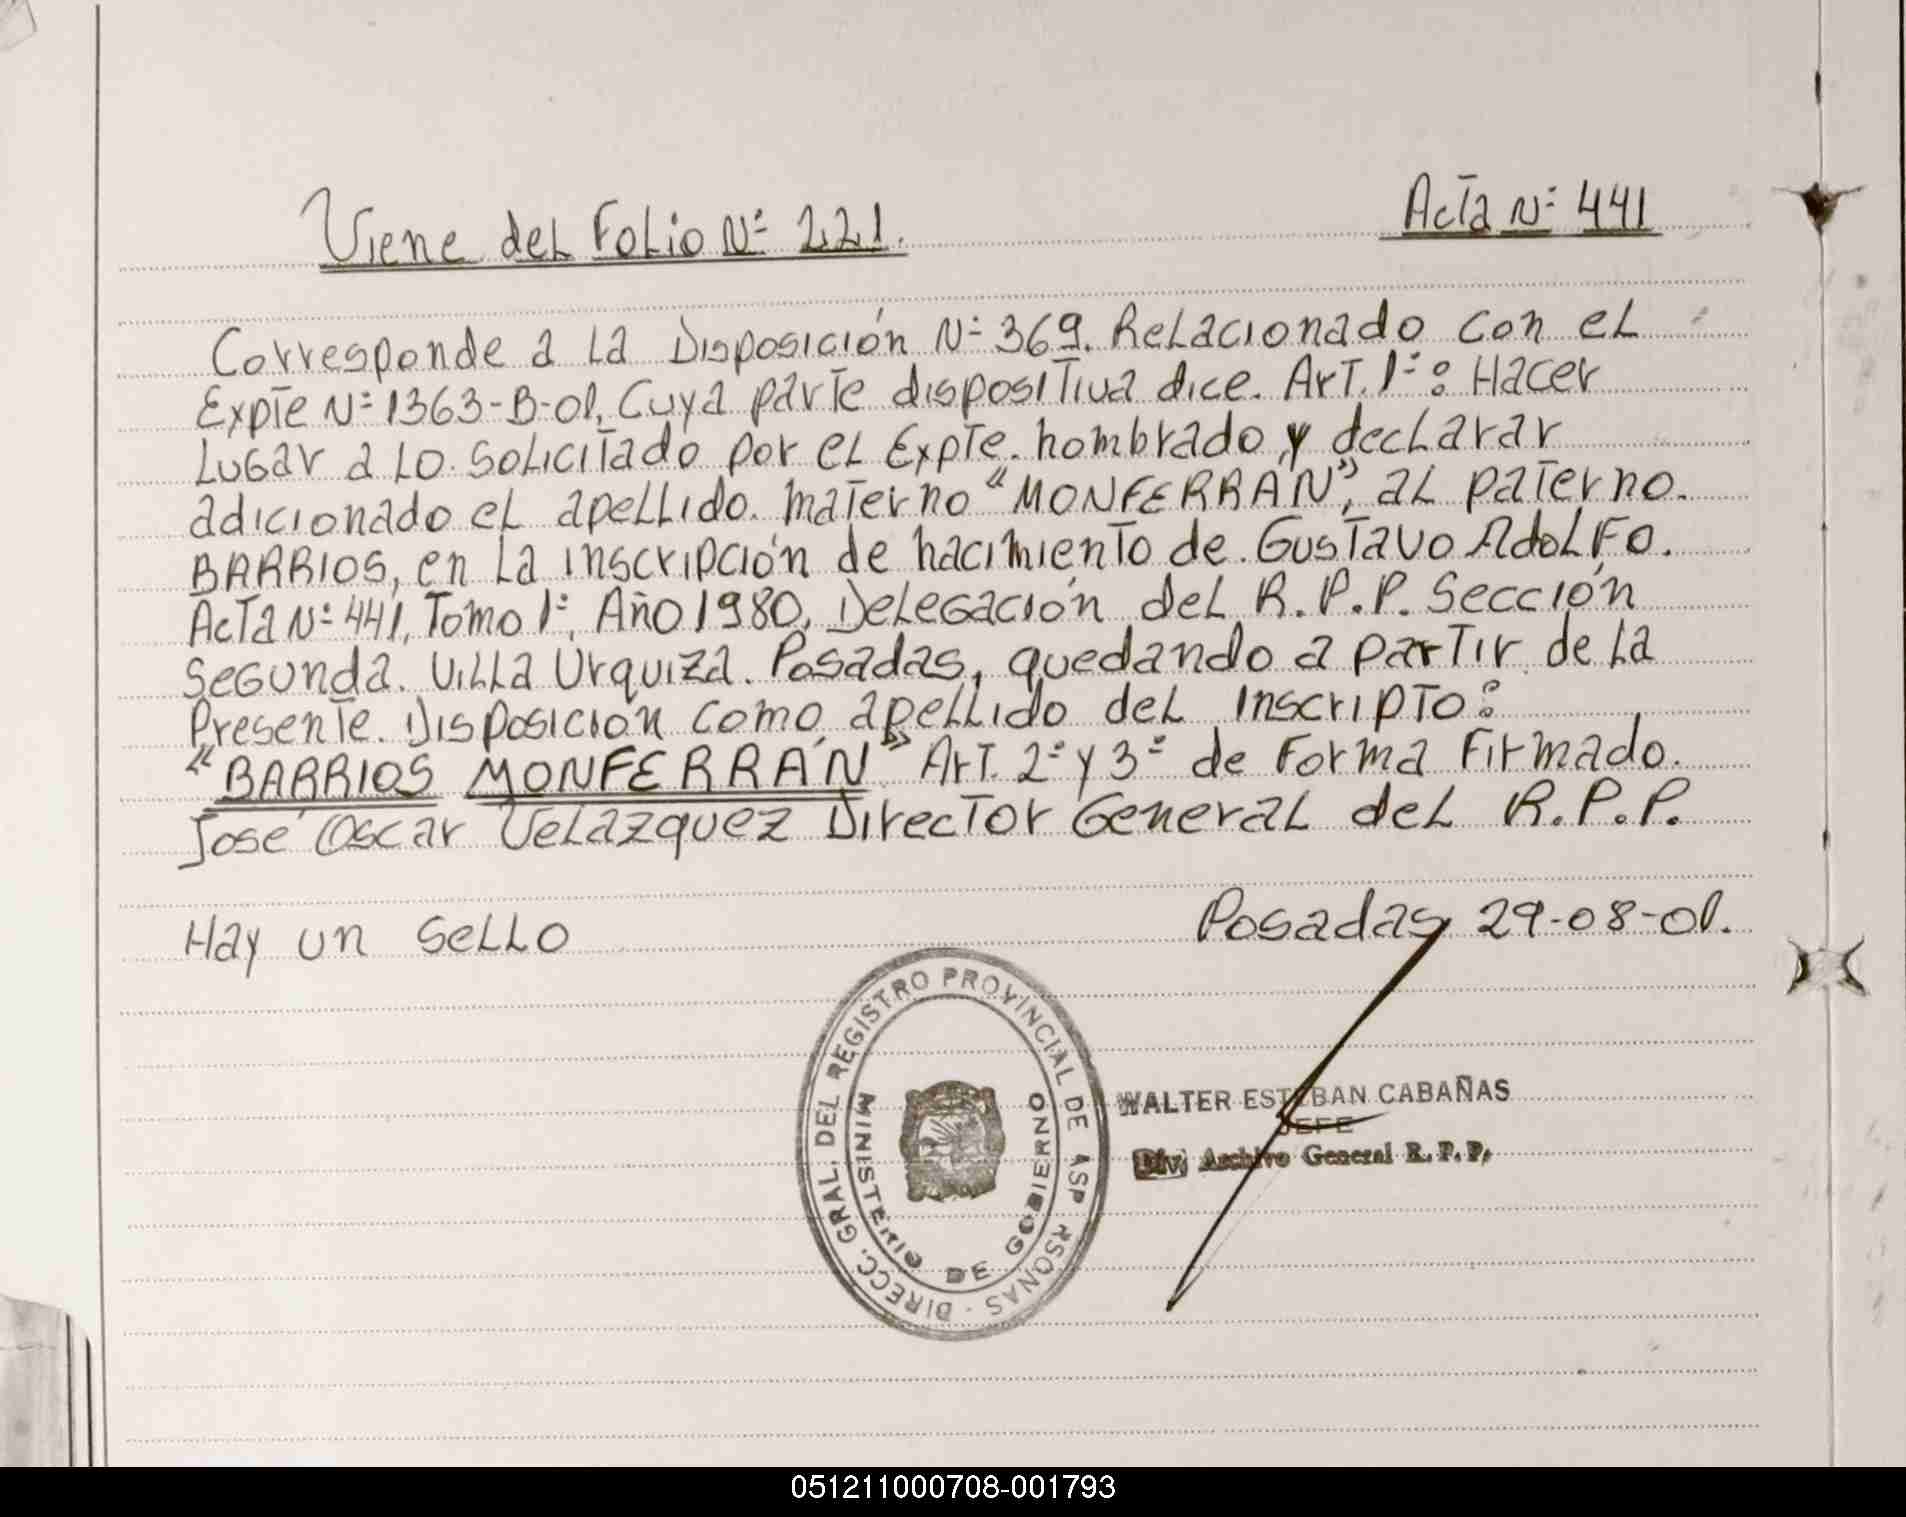 Viene del Folio Nº 221.
Acta Nº 441
Corresponde a la Disposición Nº 369. Relacionado con el
Expte Nº 1363-B-01, Cuya parte dispositiva dice. Art. 1º: Hacer
Lugar a lo solicitado por el Expte. nombrado, y declarar
adicionado el apellido. materno "MONFERRÁN", al paterno.
BARRIOS, en la inscripción de nacimiento de. Gustavo Adolfo.
Acta Nº 441, Tomo 1º, Año 1980, Delegación del R.P.P. Sección
Segunda. Villa Urquiza. Posadas, quedando a partir de la
Presente. Disposición como apellido del inscripto:
"BARRIOS MONFERRÁN" Art. 2º y 3º de Forma Firmado.
José Oscar Velazquez Director General del R.P.P.
Hay un sello
Posadas, 29-08-01.
DIRECC. GRAL. DEL REGISTRO PROVINCIAL DE ASP RSONAS
MINISTERIO DE GOBIERNO
WALTER ESTEBAN CABAÑAS
JEFE
Div. Archivo General R.P.P.
051211000708-001793